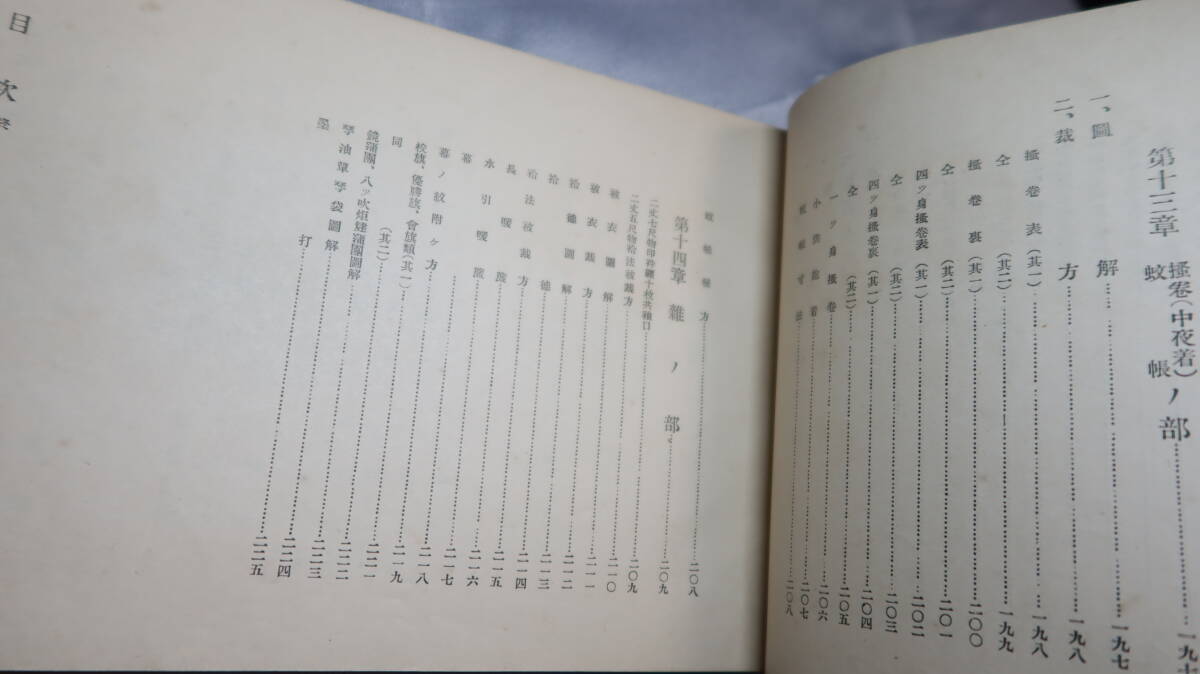 第十三章 搔卷(中夜着)蚊帳ノ部……一九七
一、圖解……一九七
二、裁方……一九八
搔卷表(其一)……一九八
仝(其二)……一九九
搔卷裏(其一)……二〇〇
仝(其二)……二〇一
四ツ身搔卷表(其一)……二〇二
仝(其二)……二〇三
四ツ身搔卷裏(其一)……二〇四
仝(其二)……二〇五
一ツ身搔卷……二〇六
小供胞着……二〇七
蚊帳寸法……二〇八
蚊帳積方……二〇八
第十四章 雜ノ部……二〇九
二丈七尺物印袢纏十枚共積口……二〇九
二丈五尺物袷法被裁方……二一〇
被衣圖解……二一一
被衣裁方……二一二
袷裲圖解……二一三
袷裲……二一四
袷法被裁方……二一五
長暖簾……二一六
水引暖簾……二一七
幕……二一八
幕ノ紋附ケ方……二一九
校旗、優勝旗、會旗類(其一)……二二一
同(其二)……二二二
鏡蒲團、八ツ吹炬燵蒲團圖解……二二三
琴油單琴袋圖解……二二四
墨打……二二五
目次 終